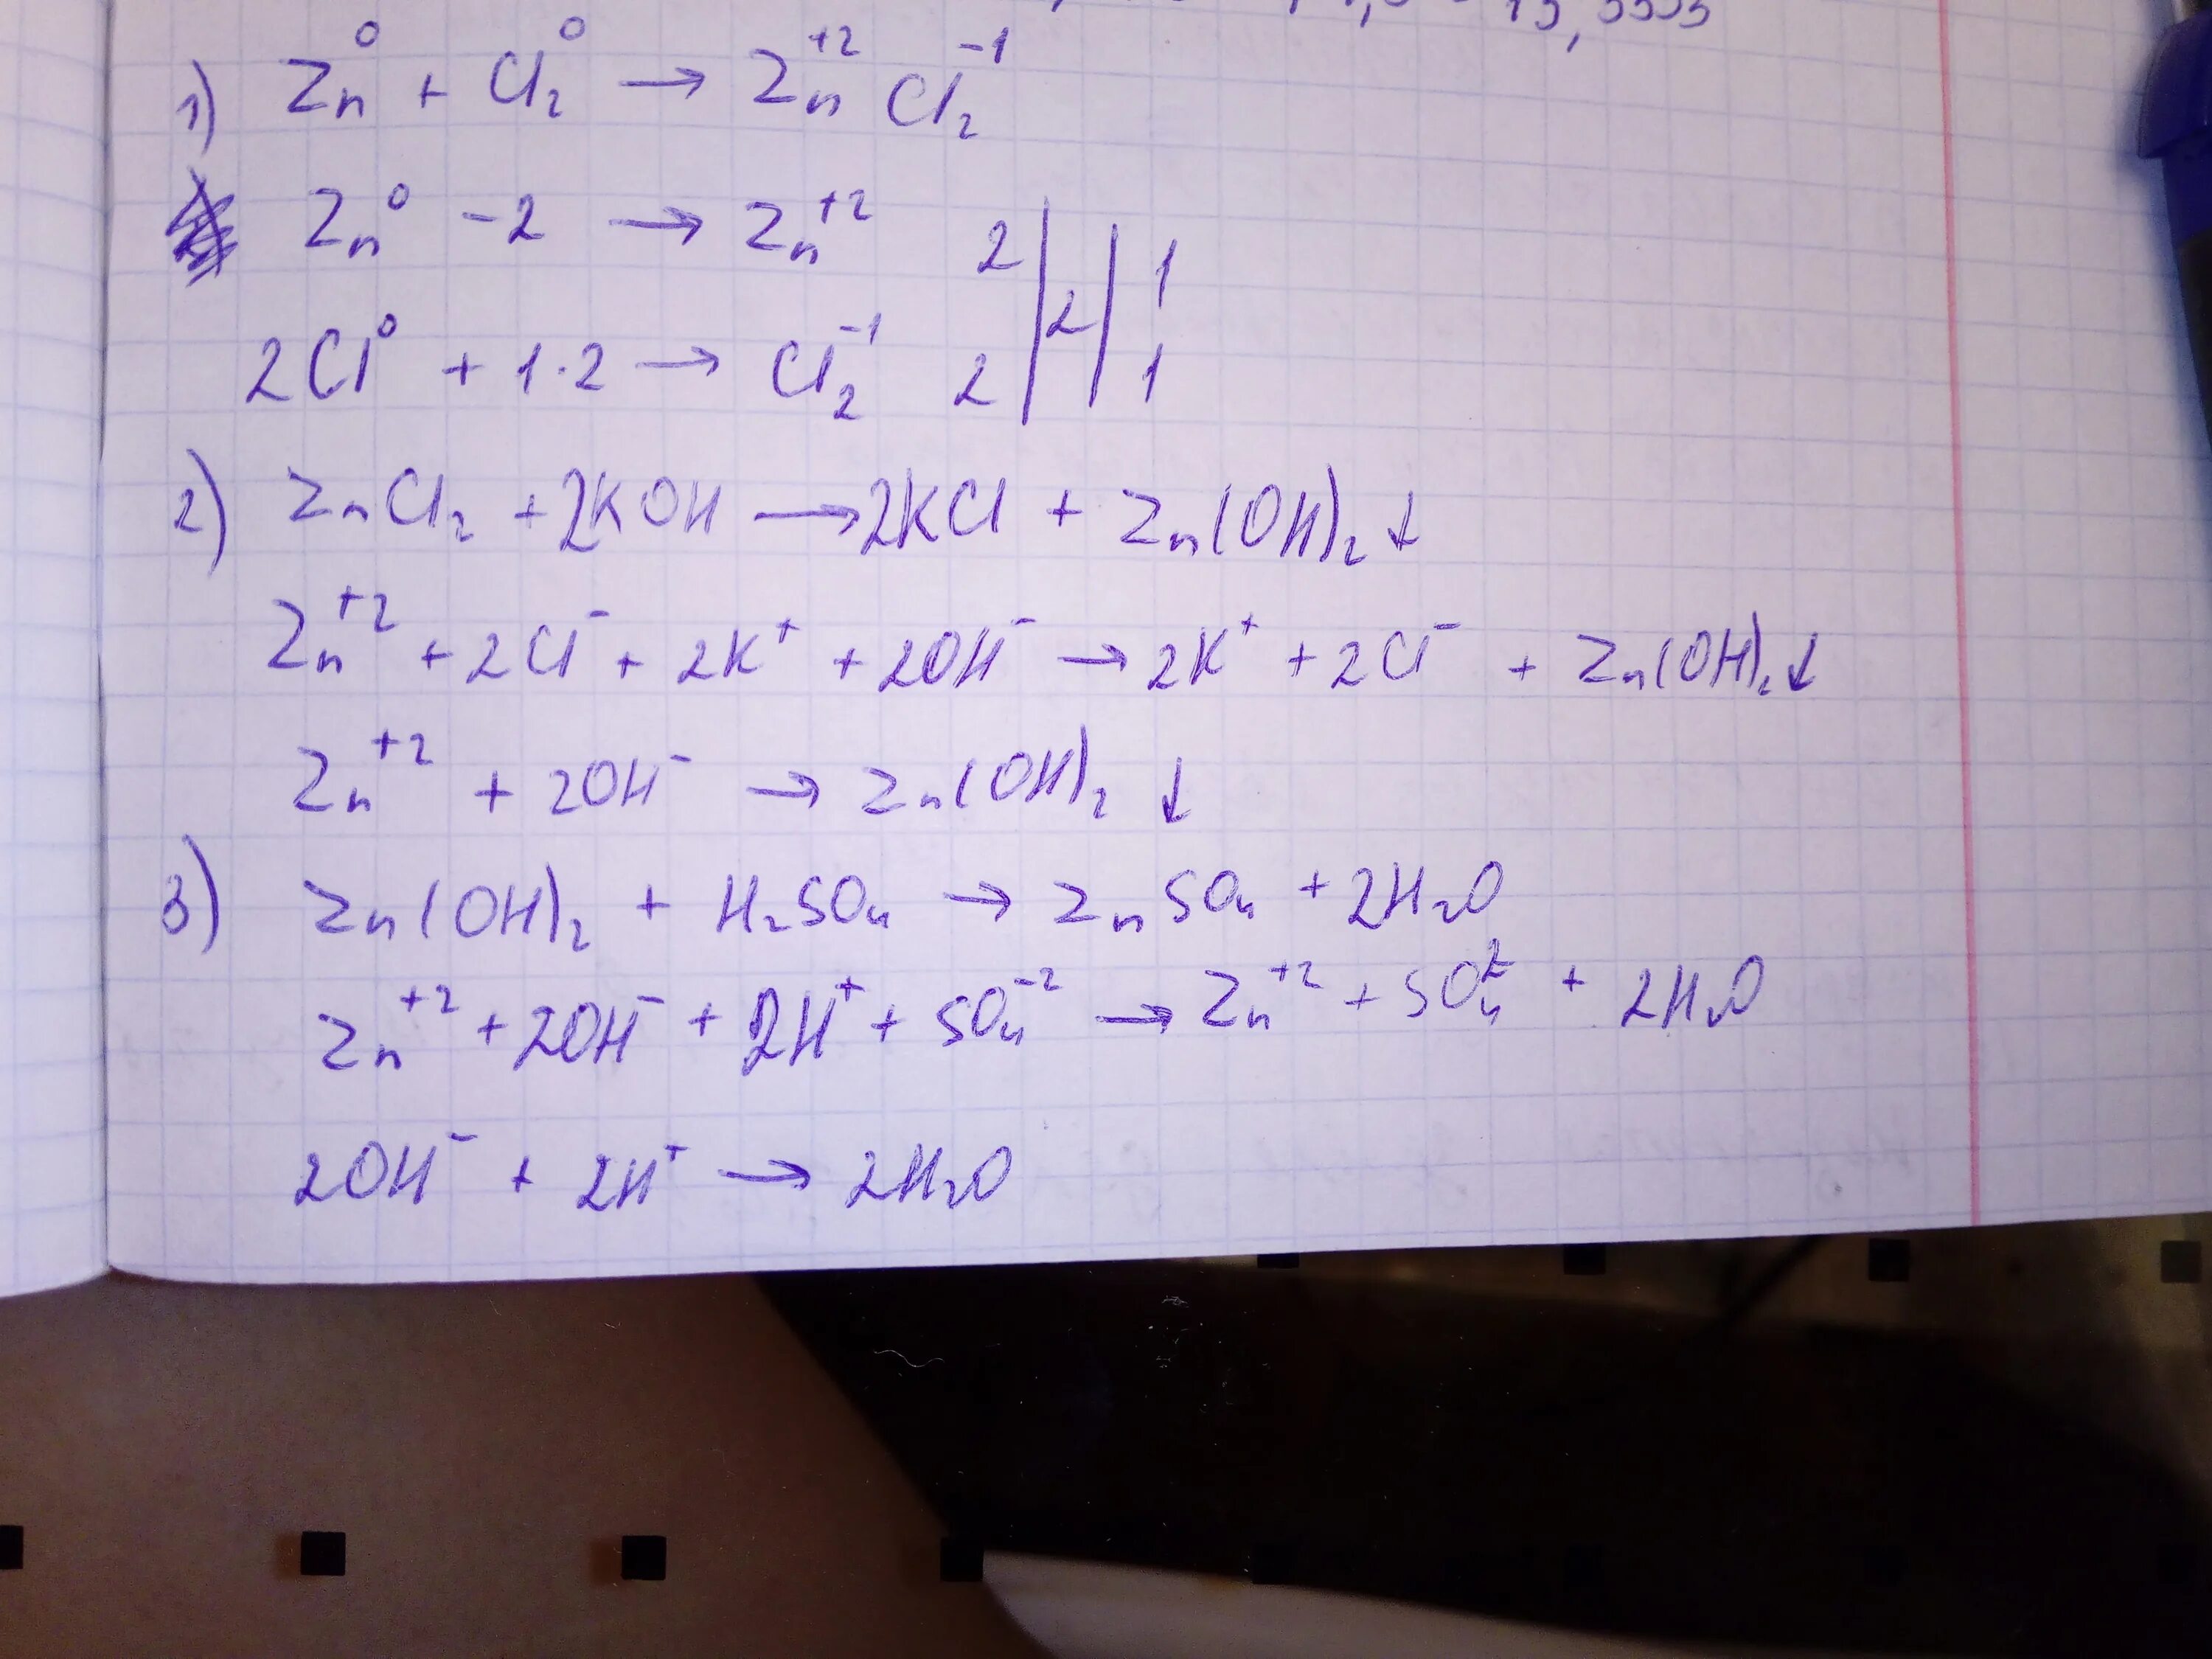 1) Zn⁰ + Cl₂⁰ → Zn⁺² Cl₂⁻¹
Zn⁰ -2 → Zn⁺² 2 | 2 | 1
2Cl⁰ + 1·2 → Cl₂⁻¹ 2 | | 1
2) ZnCl₂ + 2KOH → 2KCl + Zn(OH)₂↓
Zn⁺² + 2Cl⁻ + 2K⁺ + 2OH⁻ → 2K⁺ + 2Cl⁻ + Zn(OH)₂↓
Zn⁺² + 2OH⁻ → Zn(OH)₂ ↓
3) Zn(OH)₂ + H₂SO₄ → ZnSO₄ + 2H₂O
Zn⁺² + 2OH⁻ + 2H⁺ + SO₄⁻² → Zn⁺² + SO₄²⁻ + 2H₂O
2OH⁻ + 2H⁺ → 2H₂O